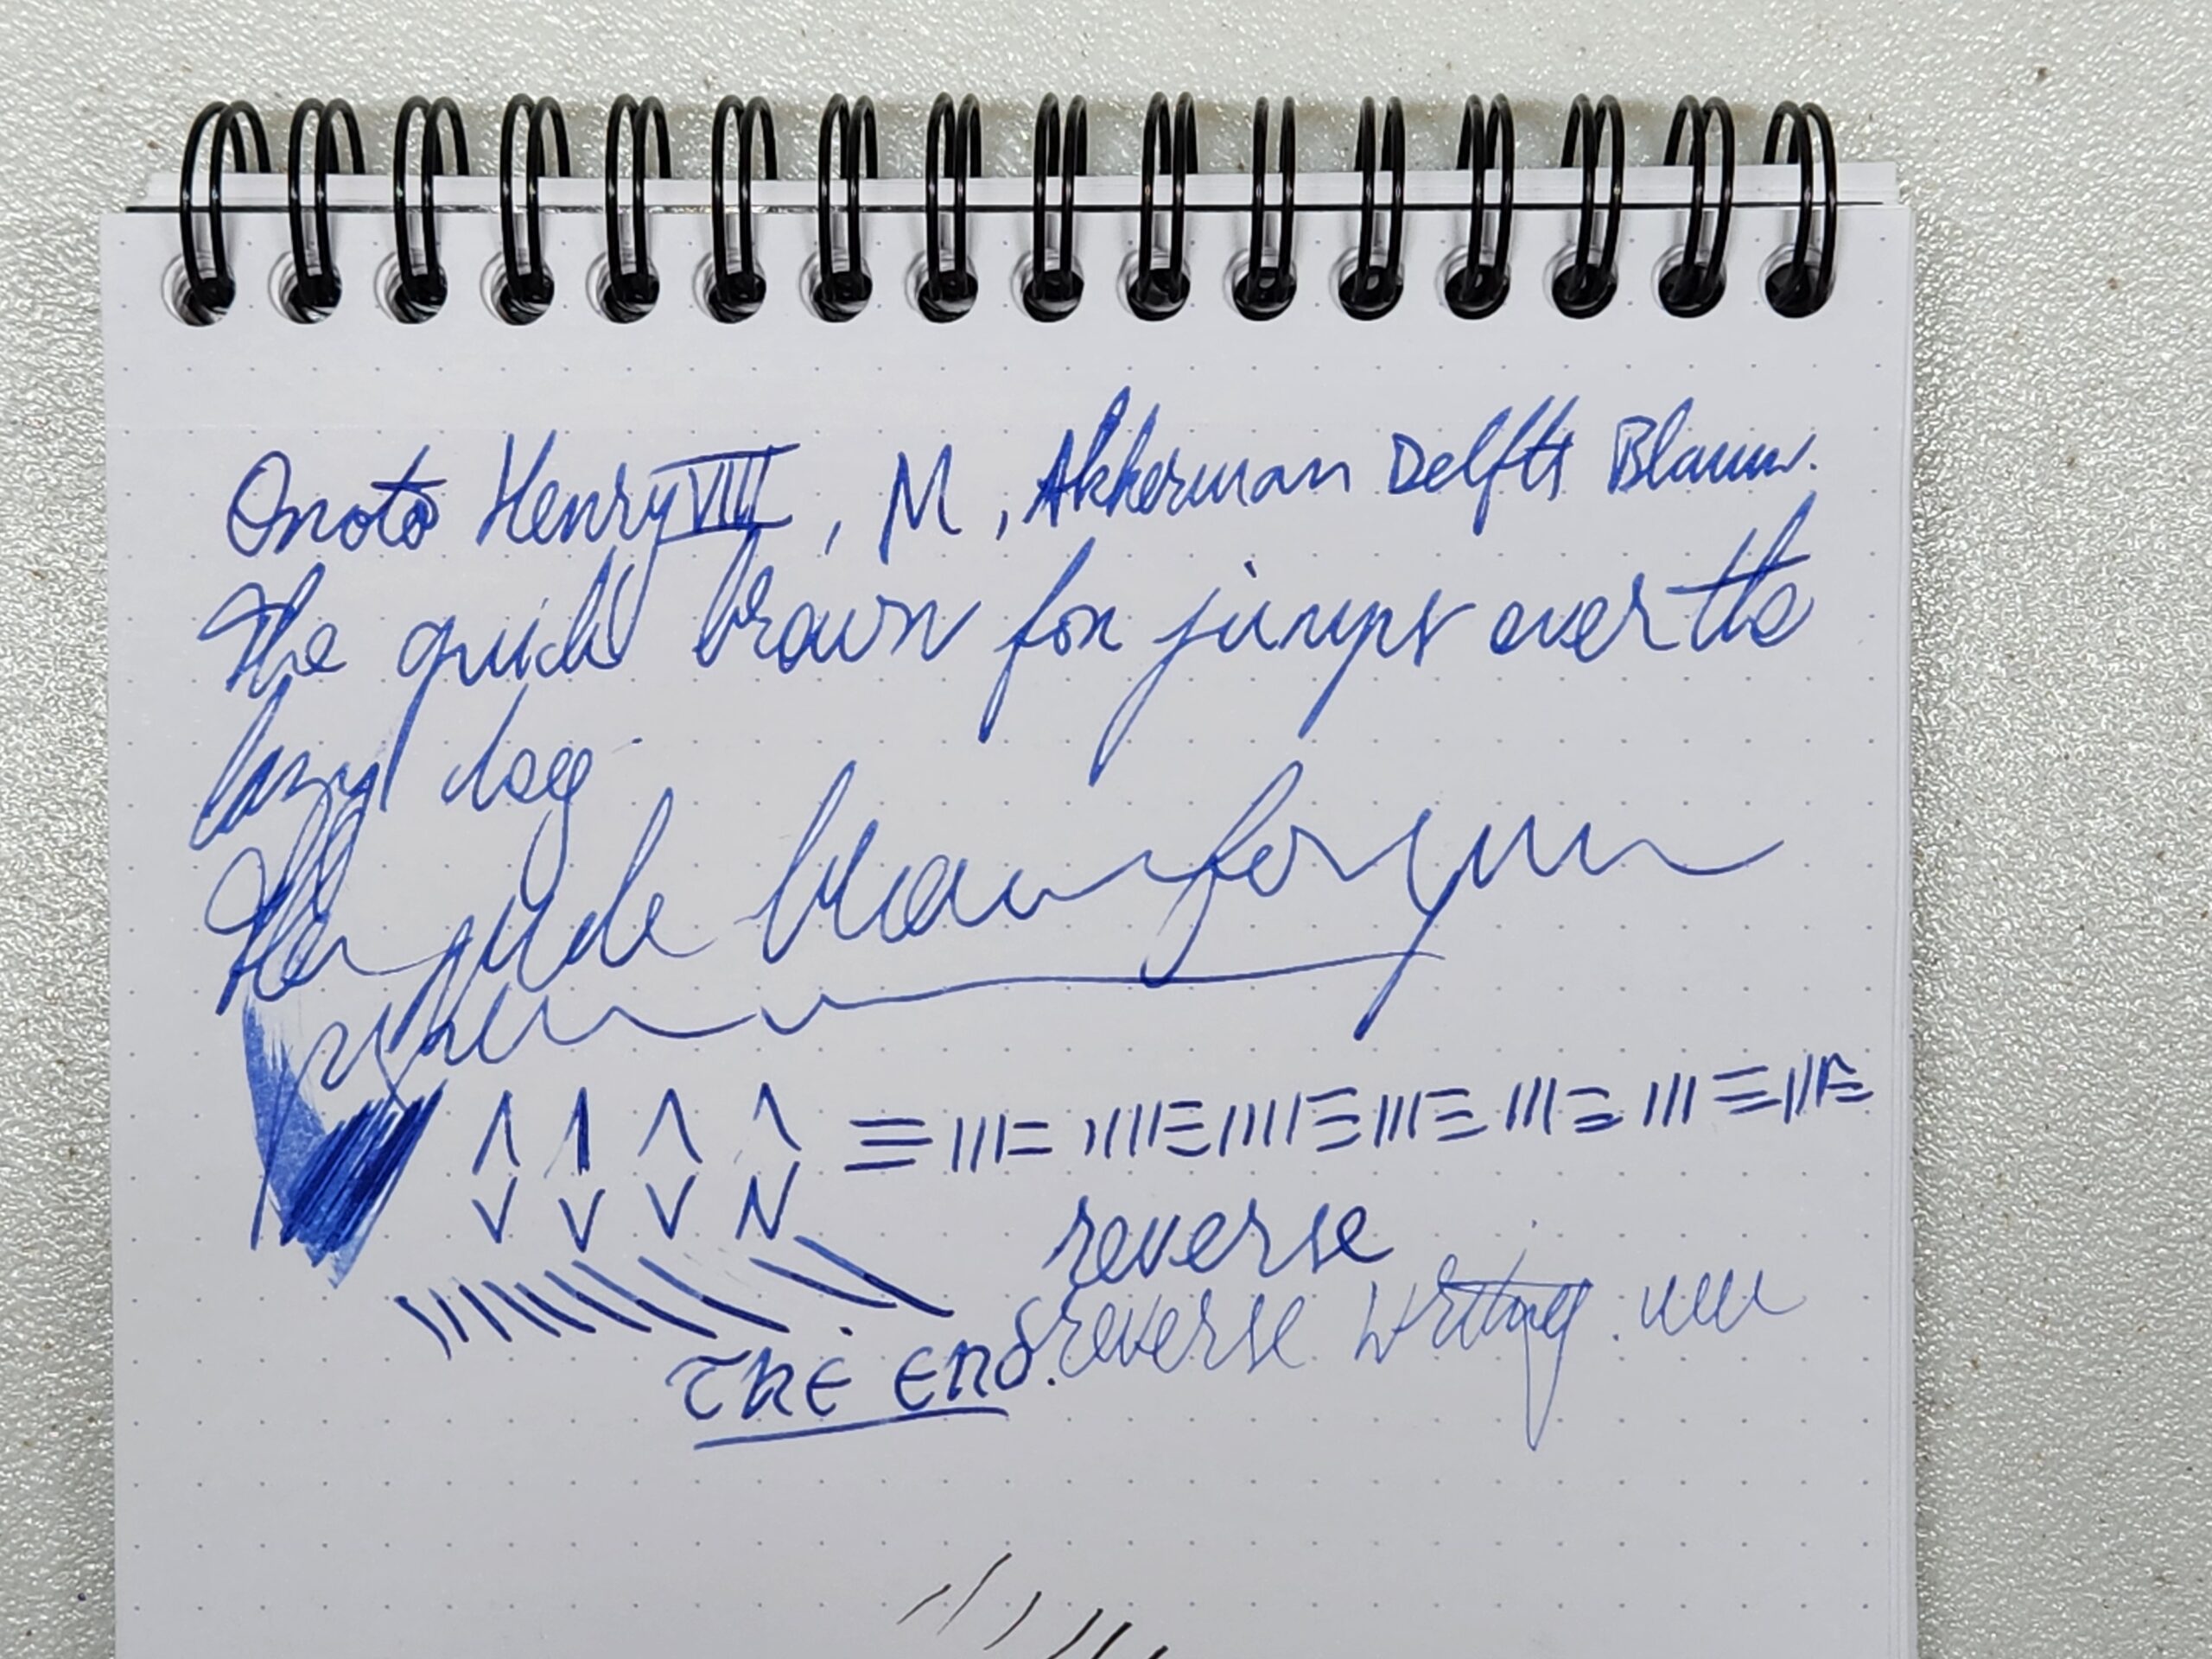 Onoto Henry VIII, M, Akkerman Delfts Blauw.
The quick brown fox jumps over the
lazy dog
The quick brown fox jum
reverse
reverse writing.
THE END.